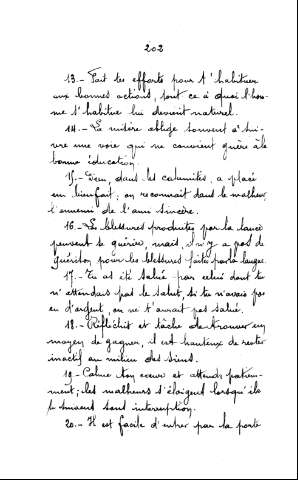 202
13.- Fait tes efforts pour t'habituer
aux bonnes actions, tout ce à quoi l'hom-
me s'habitue lui devient naturel.
14.- La misère oblige souvent à sui-
vre une voie qui ne convient guère à la
bonne éducation.
15.- Dieu, dans les calamités, a placé
un bienfait; on reconnait dans le malheur
l'ennemi de l'ami sincère.
16.- Les blessures produites par la lance
peuvent se guérir, mais, il n'y a pas de
guérison pour les blessures faites par la langue
17.- Tu as été salué par celui dont tu
n'attendais pas le salut, si tu n'avais pas
eu d'argent, on ne t'aurait pas salué.
18.- Réfléchit et tâche de trouver un
moyen de gagner, il est honteux de rester
inactif au milieu des siens.
19.- Calme ton coeur et attends patiem-
ment; les malheurs s'éloignent lorsqu'ils
se suivent sans interruption.
20.- Il est facile d'entrer par la porte